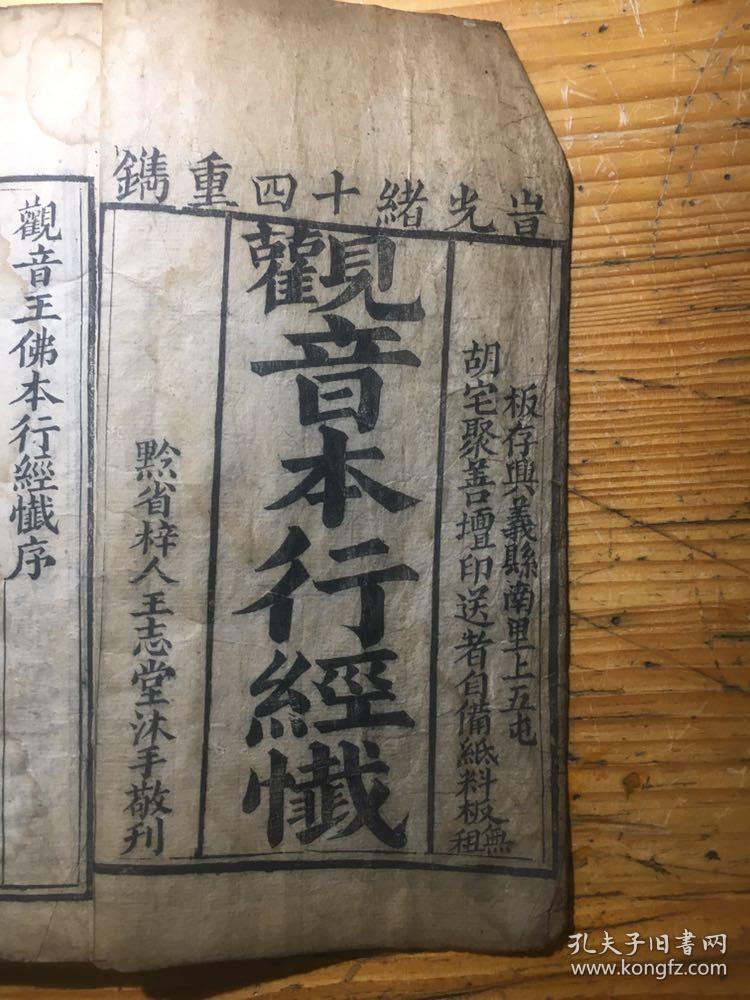 旹光緒十四重鐫
板存興義縣南里上五屯
胡宅聚善壇印送者自備紙料板無租
觀音本行經懺
黔省梓人王志堂沐手敬刊
觀音王佛本行經懺序
孔夫子旧書网
www.kongfz.com